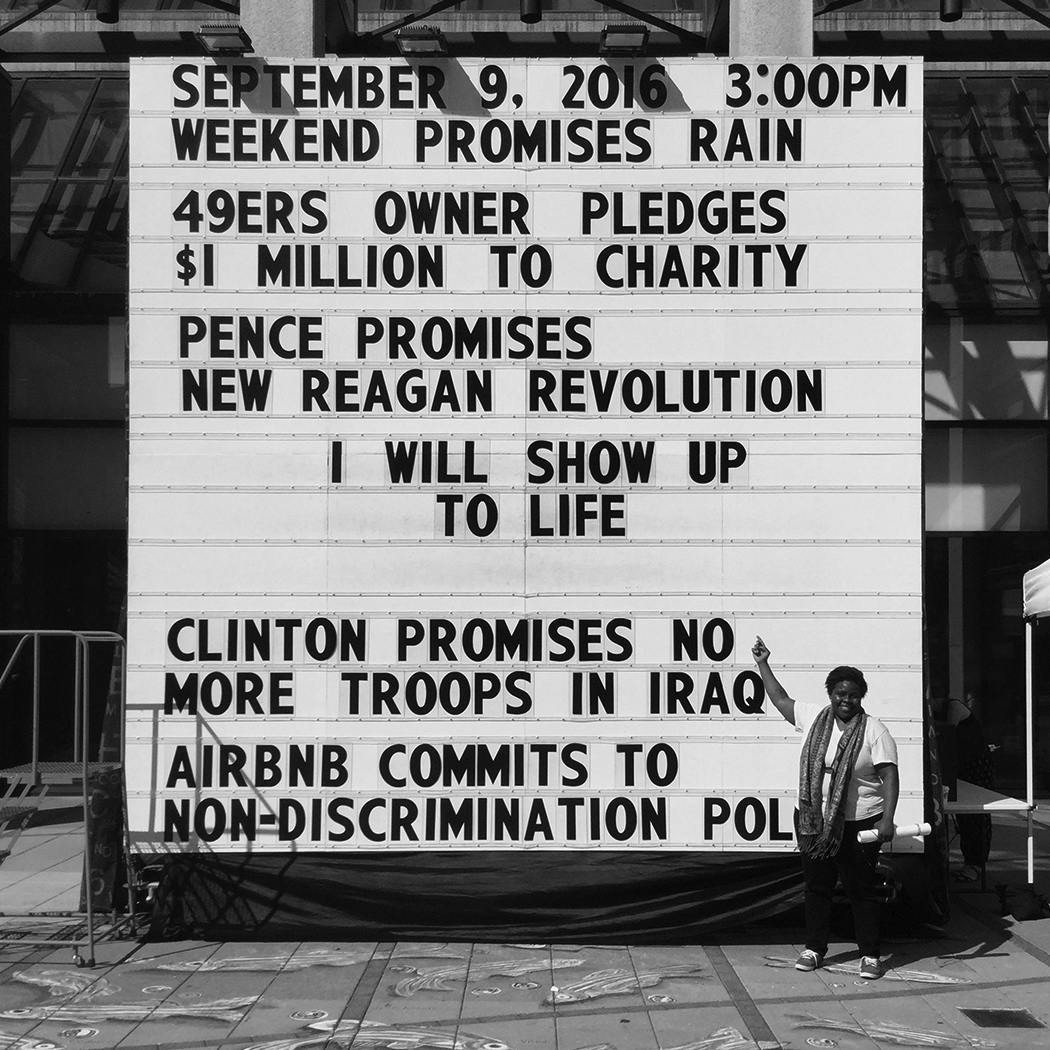 SEPTEMBER 9, 2016 3:00PM
WEEKEND PROMISES RAIN
49ERS OWNER PLEDGES
$1 MILLION TO CHARITY
PENCE PROMISES
NEW REAGAN REVOLUTION
I WILL SHOW UP
TO LIFE
CLINTON PROMISES NO
MORE TROOPS IN IRAQ
AIRBNB COMMITS TO
NON-DISCRIMINATION POL